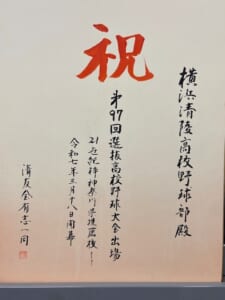 祝
横浜清陵高校野球部殿
第97回選抜高校野球大会出場
21世紀枠神奈川県推薦校
令和七年三月十八日開幕
清友会有志一同